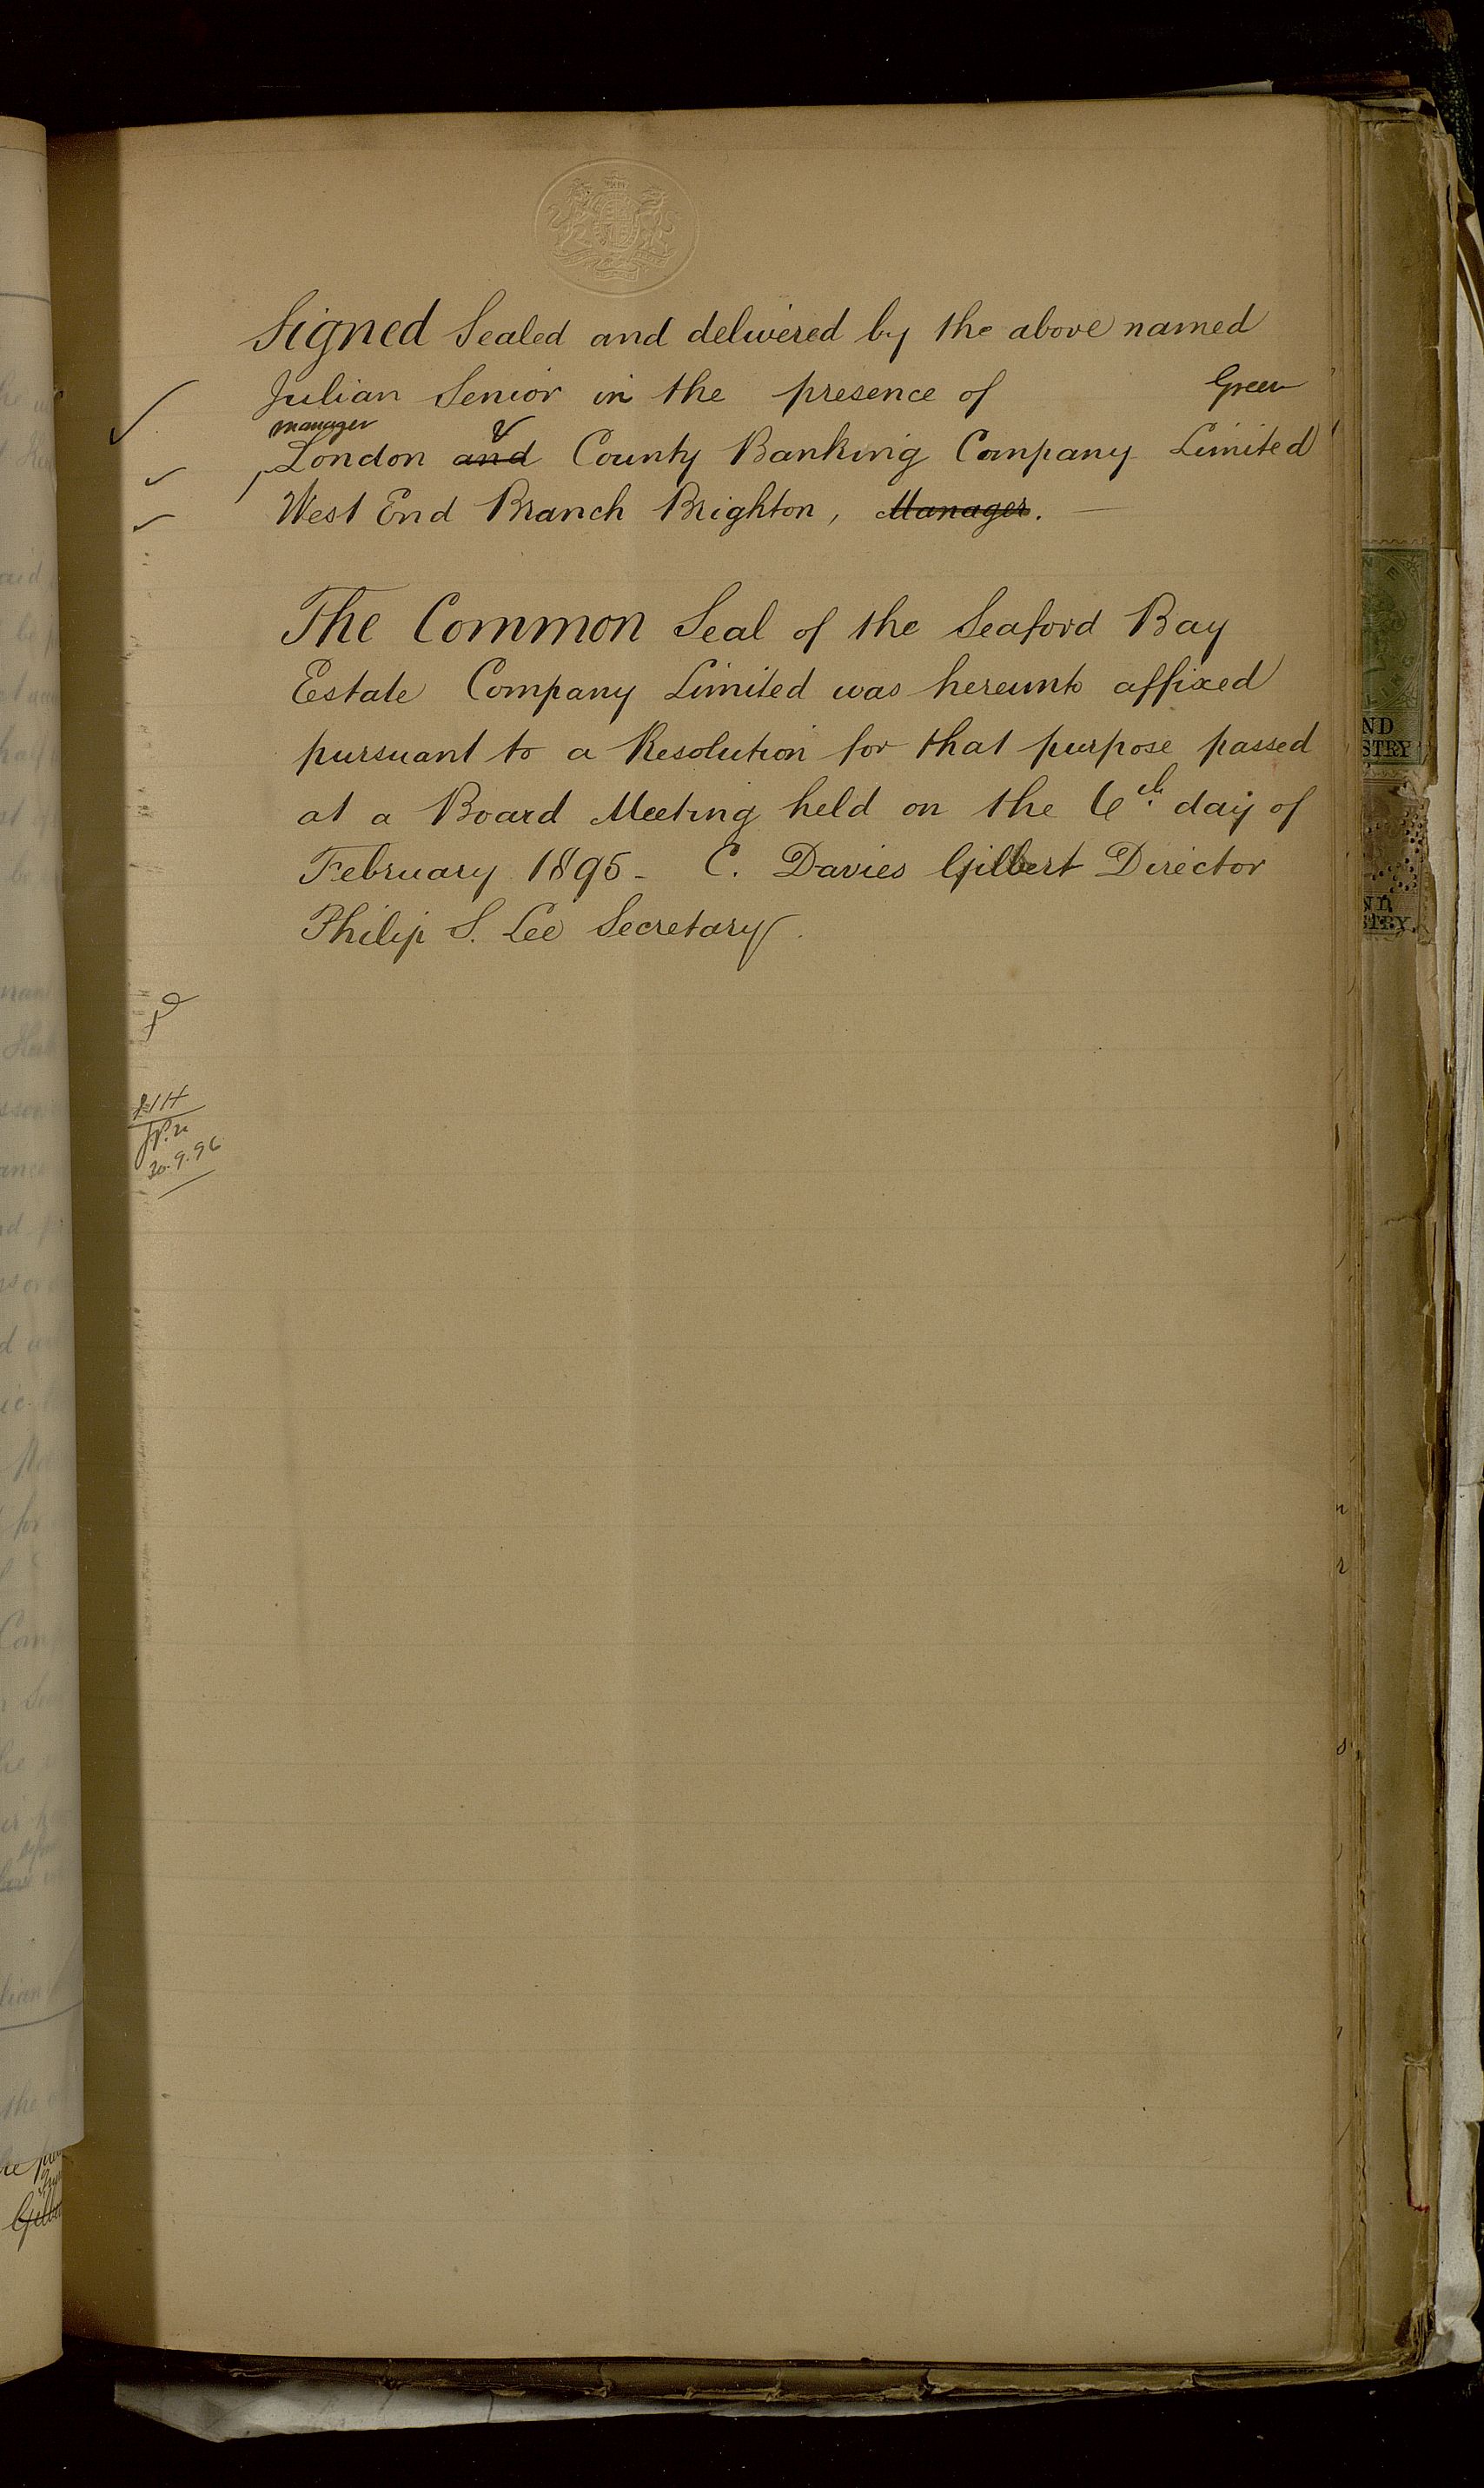 Signed Sealed and delivered by the above named
Julian Senior in the presence of Green
manager &
London and County Banking Company Limited
West End Branch Brighton, Manager.
The Common Seal of the Seaford Bay
Estate Company Limited was hereunto affixed
pursuant to a Resolution for that purpose passed
at a Board Meeting held on the 6th day of
February 1895 - C. Davies Gilbert Director
Philip S. Lee Secretary.
30.9.96
ND
STRY